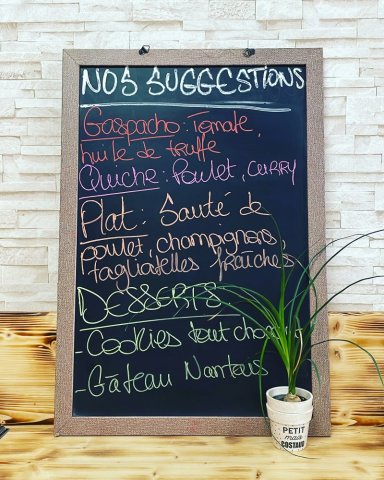 NOS SUGGESTIONS
Gaspacho : Tomate,
huile de truffe
Quiche : Poulet, curry
Plat : Sauté de
poulet, champignons,
tagliatelles fraîches
DESSERTS
- Cookies tout
- Gâteau Nantais
PETIT
mais
COSTAUD